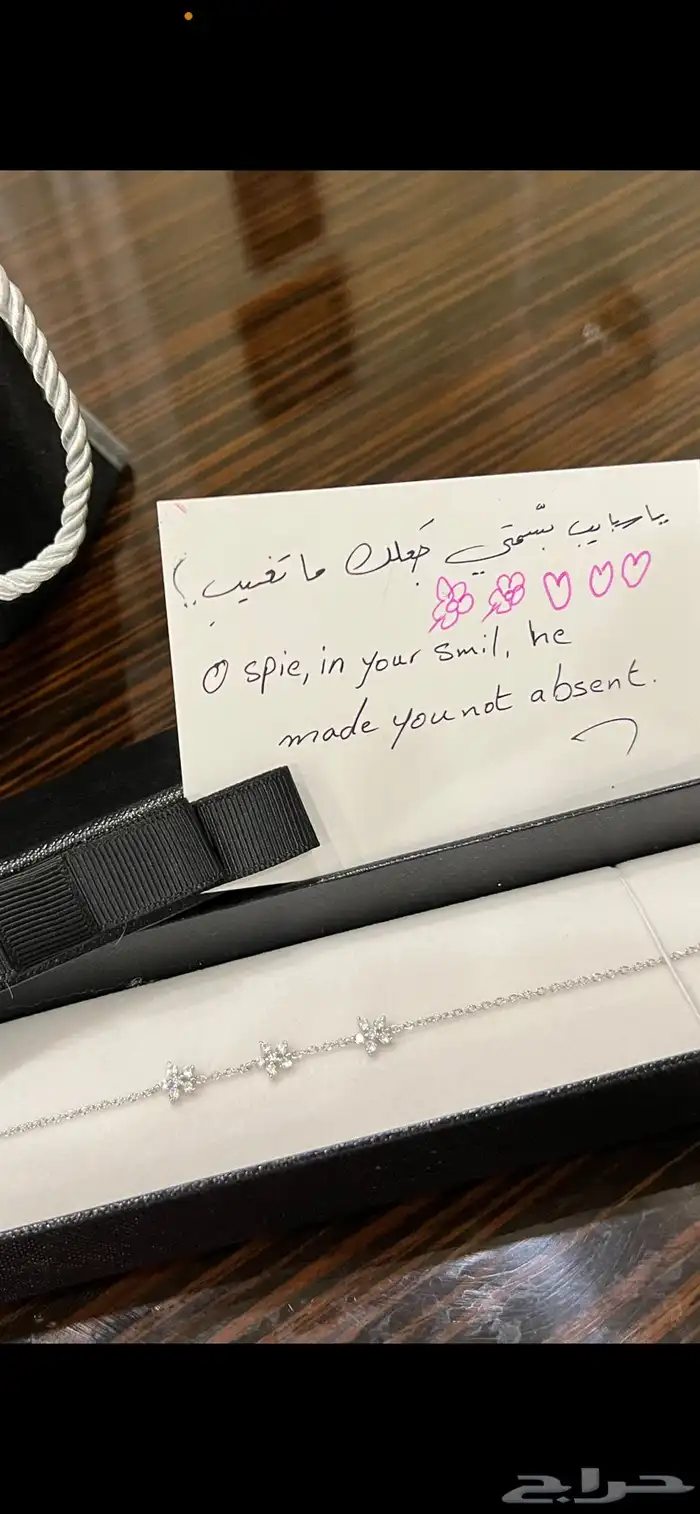 ياسبايب بسّمتي جَعلك ما تَغيب..
O spie, in your smil, he
made you not absent.
حراج